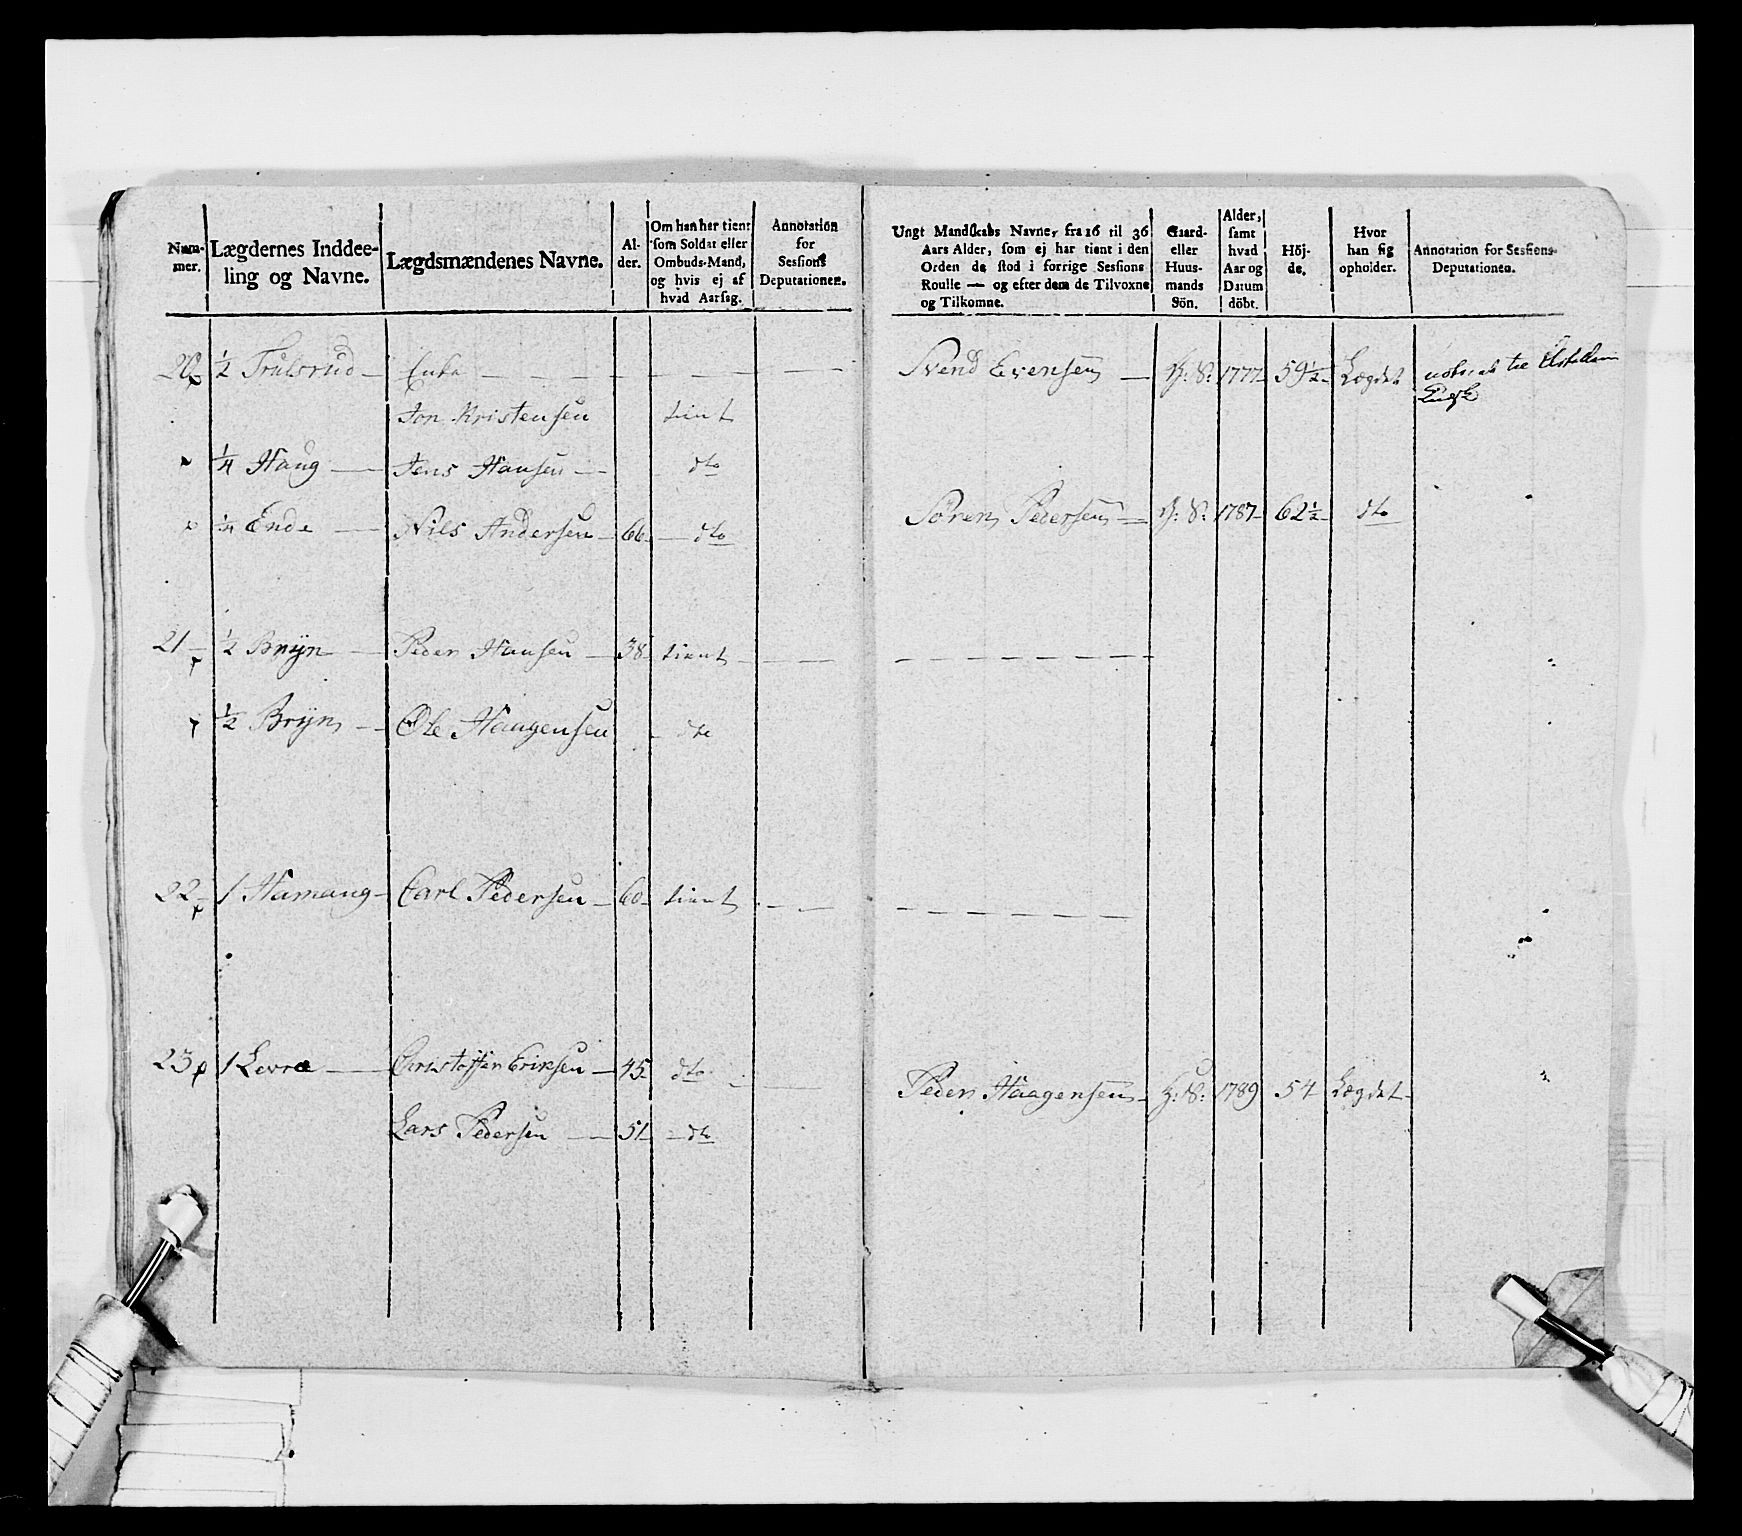 Num-
mer.
Lægdernes Inddee-
ling og Navne.
Lægdsmændenes Navne.
Al-
der.
Om han har tient
som Soldat eller
Ombuds-Mand,
og hvis ej af
hvad Aarsag.
Annotation
for
Sessions
Deputationen.
Ungt Mandskabs Navne, fra 16 til 36
Aars Alder, som ej har tient i den
Orden de stod i forrige Sessions
Roulle — og efter dem de Tilvoxne
og Tilkomne.
Gaard-
eller
Huus-
mands
Sön.
Alder,
samt
hvad
Aar og
Datum
döbt.
Höj-
de.
Hvor
han sig
opholder.
Annotation for Sessions-
Deputationen.
20 ½ Trulsrud — Enke — Svend Evensen — G: S: 1777 59½ Lægdet
Jon Kristensen tient
¼ Haug — Jens Hansen — dto
¼ Ende — Nils Andersen — 66 — dto Sören Pedersen — G: S: 1787 62½ dto
21 ½ Bryn — Peder Hansen — 38 tient
½ Bryn — Ole Haagensen — dto
22 1 Hamang — Carl Pedersen — 60 tient
23 1 Levre — Christoffer Eriksen — 45 dto Peder Haagensen — H: S: 1789 54 Lægdet
Lars Pedersen — 51 — dto